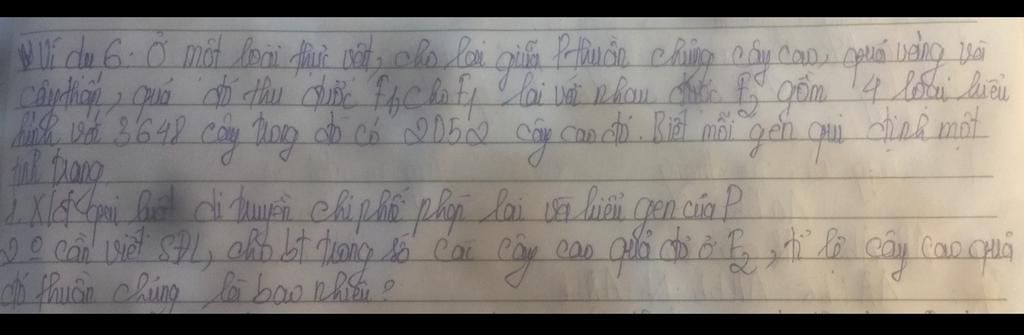 Ví dụ 6: Ở một loài thực vật, cho lai giữa P thuần chủng cây cao, quả vàng với
cây thấp, quả đỏ thu được F1, cho F1 lai với nhau được F2 gồm 4 loại kiểu
hình với 3648 cây trong đó có 2052 cây cao đỏ. Biết mỗi gen qui định một
tính trạng
1. Xđ qui luật di truyền chi phối phép lai và kiểu gen của P
2. 0 cần viết SĐL, cho bt trong số các cây cao quả đỏ ở F2, tỉ lệ cây cao quả
đỏ thuần chủng là bao nhiêu?